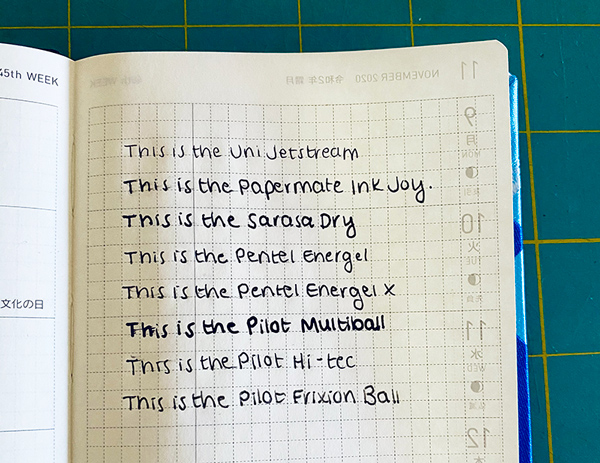 45th WEEK
11
NOVEMBER 2020 令和2年 霜月
文化の日
This is the Uni Jetstream
This is the Papermate Ink Joy.
This is the Sarasa Dry
This is the Pentel Energel
This is the Pentel Energel X
This is the Pilot Multiball
This is the Pilot Hi-tec
This is the Pilot Frixion Ball
9
月
MON
10
火
TUE
11
水
WED
12